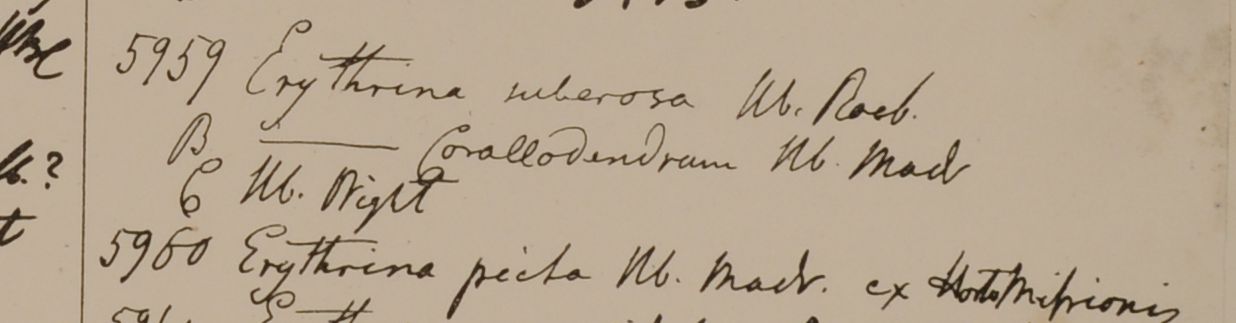 5959 Erythrina suberosa Hb. Roxb.
B ——— Corallodendrum Hb. Madr
C Hb. Wight
5960 Erythrina picta Hb. Madr. ex Horto Missionis